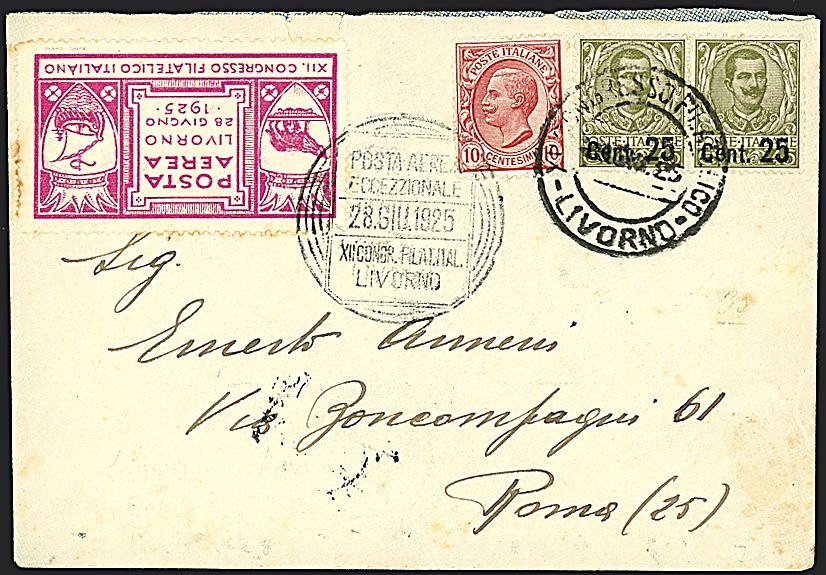 XII. CONGRESSO FILATELICO ITALIANO
POSTA
AEREA
LIVORNO
28 GIUGNO
· 1925 ·
POSTE ITALIANE
10 CENTESIMI 10
POSTE ITALIANE
Cent. 25
POSTE ITALIANE
Cent. 25
LIVORNO
POSTA AEREA
ECCEZZIONALE
28.GIU.1925
XII CONGR. FILAT. ITAL.
LIVORNO
Sig.
Ernesto
Via Boncompagni 61
Roma (25)